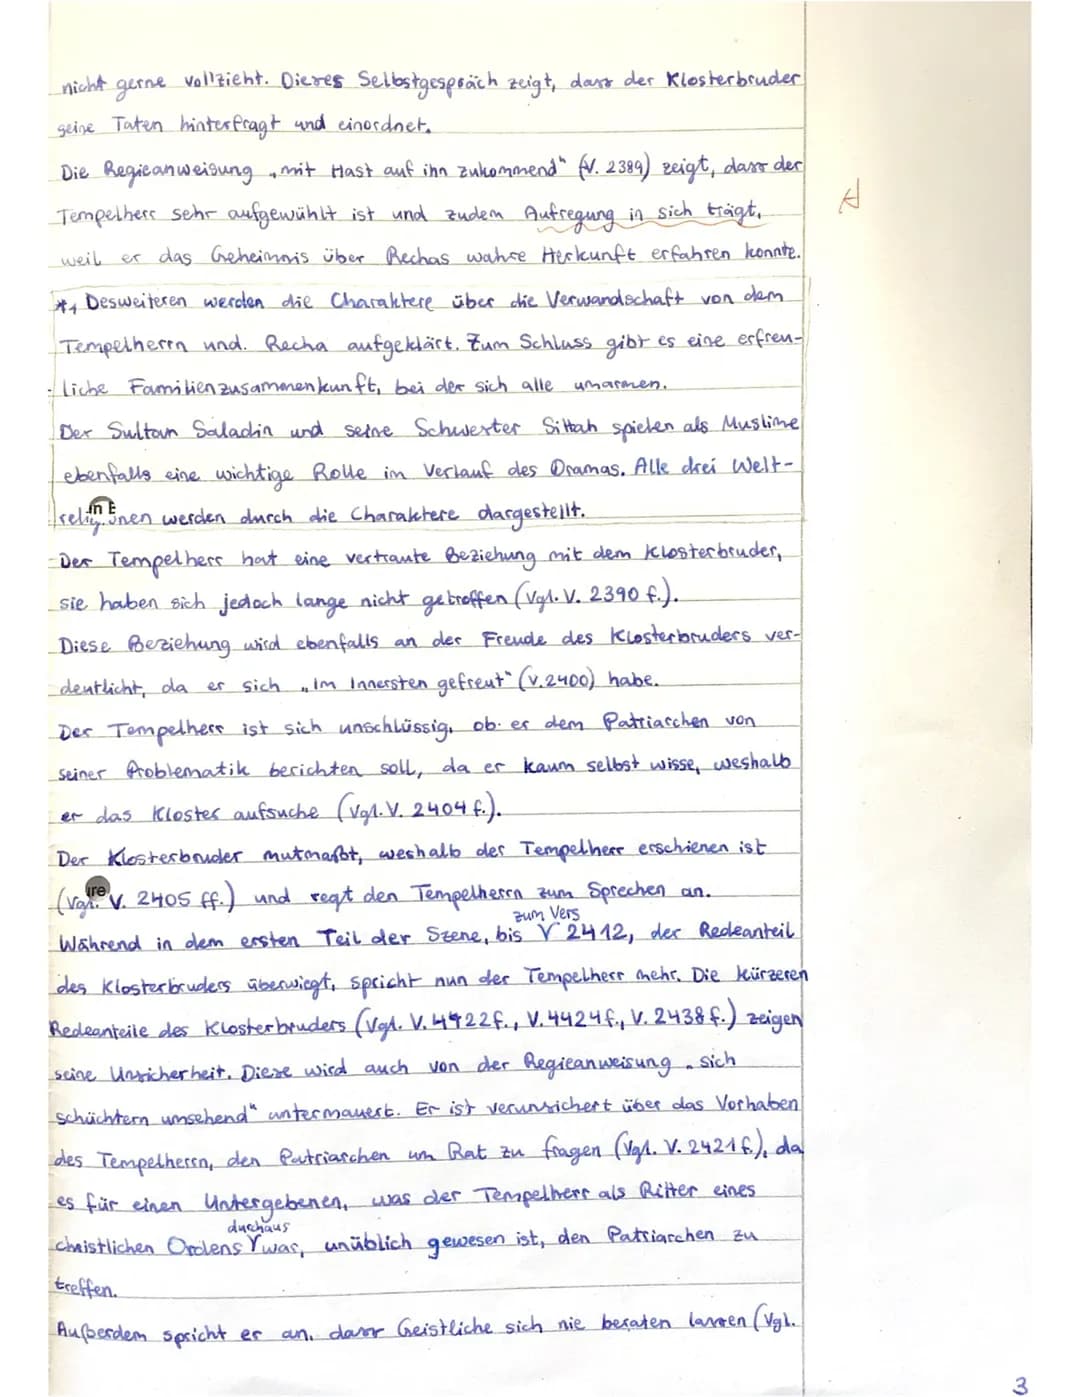 nicht gerne vollzieht. Dieses Selbstgespräch zeigt, dass der Klosterbruder
seine Taten hinterfragt und einordnet.
Die Regieanweisung „mit Hast auf ihn zukommend" (V. 2389) zeigt, dass der
Tempelherr sehr aufgewühlt ist und zudem Aufregung in sich trägt,
A
weil er das Geheimnis über Rechas wahre Herkunft erfahren konnte.
*1 Desweiteren werden die Charaktere über die Verwandschaft von dem
Tempelherrn und. Recha aufgeklärt. Zum Schluss gibt es eine erfreu-
liche Familienzusammenkunft, bei der sich alle umarmen.
Der Sultan Saladin und seine Schwester Sittah spielen als Muslime
ebenfalls eine wichtige Rolle im Verlauf des Dramas. Alle drei Welt-
religionen werden durch die Charaktere dargestellt.
Der Tempelherr hat eine vertraute Beziehung mit dem Klosterbruder,
sie haben sich jedoch lange nicht getroffen (Vgl. V. 2390 f.).
Diese Beziehung wird ebenfalls an der Freude des Klosterbruders ver-
deutlicht, da er sich „im Innersten gefreut" (V. 2400) habe.
Der Tempelherr ist sich unschlüssig, ob er dem Patriarchen von
seiner Problematik berichten soll, da er kaum selbst wisse, weshalb
er das Kloster aufsuche (Vgl. V. 2404 f.).
Der Klosterbruder mutmaßt, weshalb der Tempelherr erschienen ist
(Vgl. V. 2405 ff.) und regt den Tempelherrn zum Sprechen an.
zum Vers
Während in dem ersten Teil der Szene, bis 2412, der Redeanteil
des Klosterbruders überwiegt, spricht nun der Tempelherr mehr. Die kürzeren
Redeanteile des Klosterbruders (Vgl. V. 4422f., V. 4424f., V. 2438 f.) zeigen
seine Unsicherheit. Diese wird auch von der Regieanweisung „sich
schüchtern umsehend" untermauert. Er ist verunsichert über das Vorhaben
des Tempelherrn, den Patriarchen um Rat zu fragen (Vgl. V. 2421 f.), da
es für einen Untergebenen, was der Tempelherr als Ritter eines
durchaus
christlichen Ordens war, unüblich gewesen ist, den Patriarchen zu
treffen.
Außerdem spricht er an, dass Geistliche sich nie beraten lassen (Vgl.
3